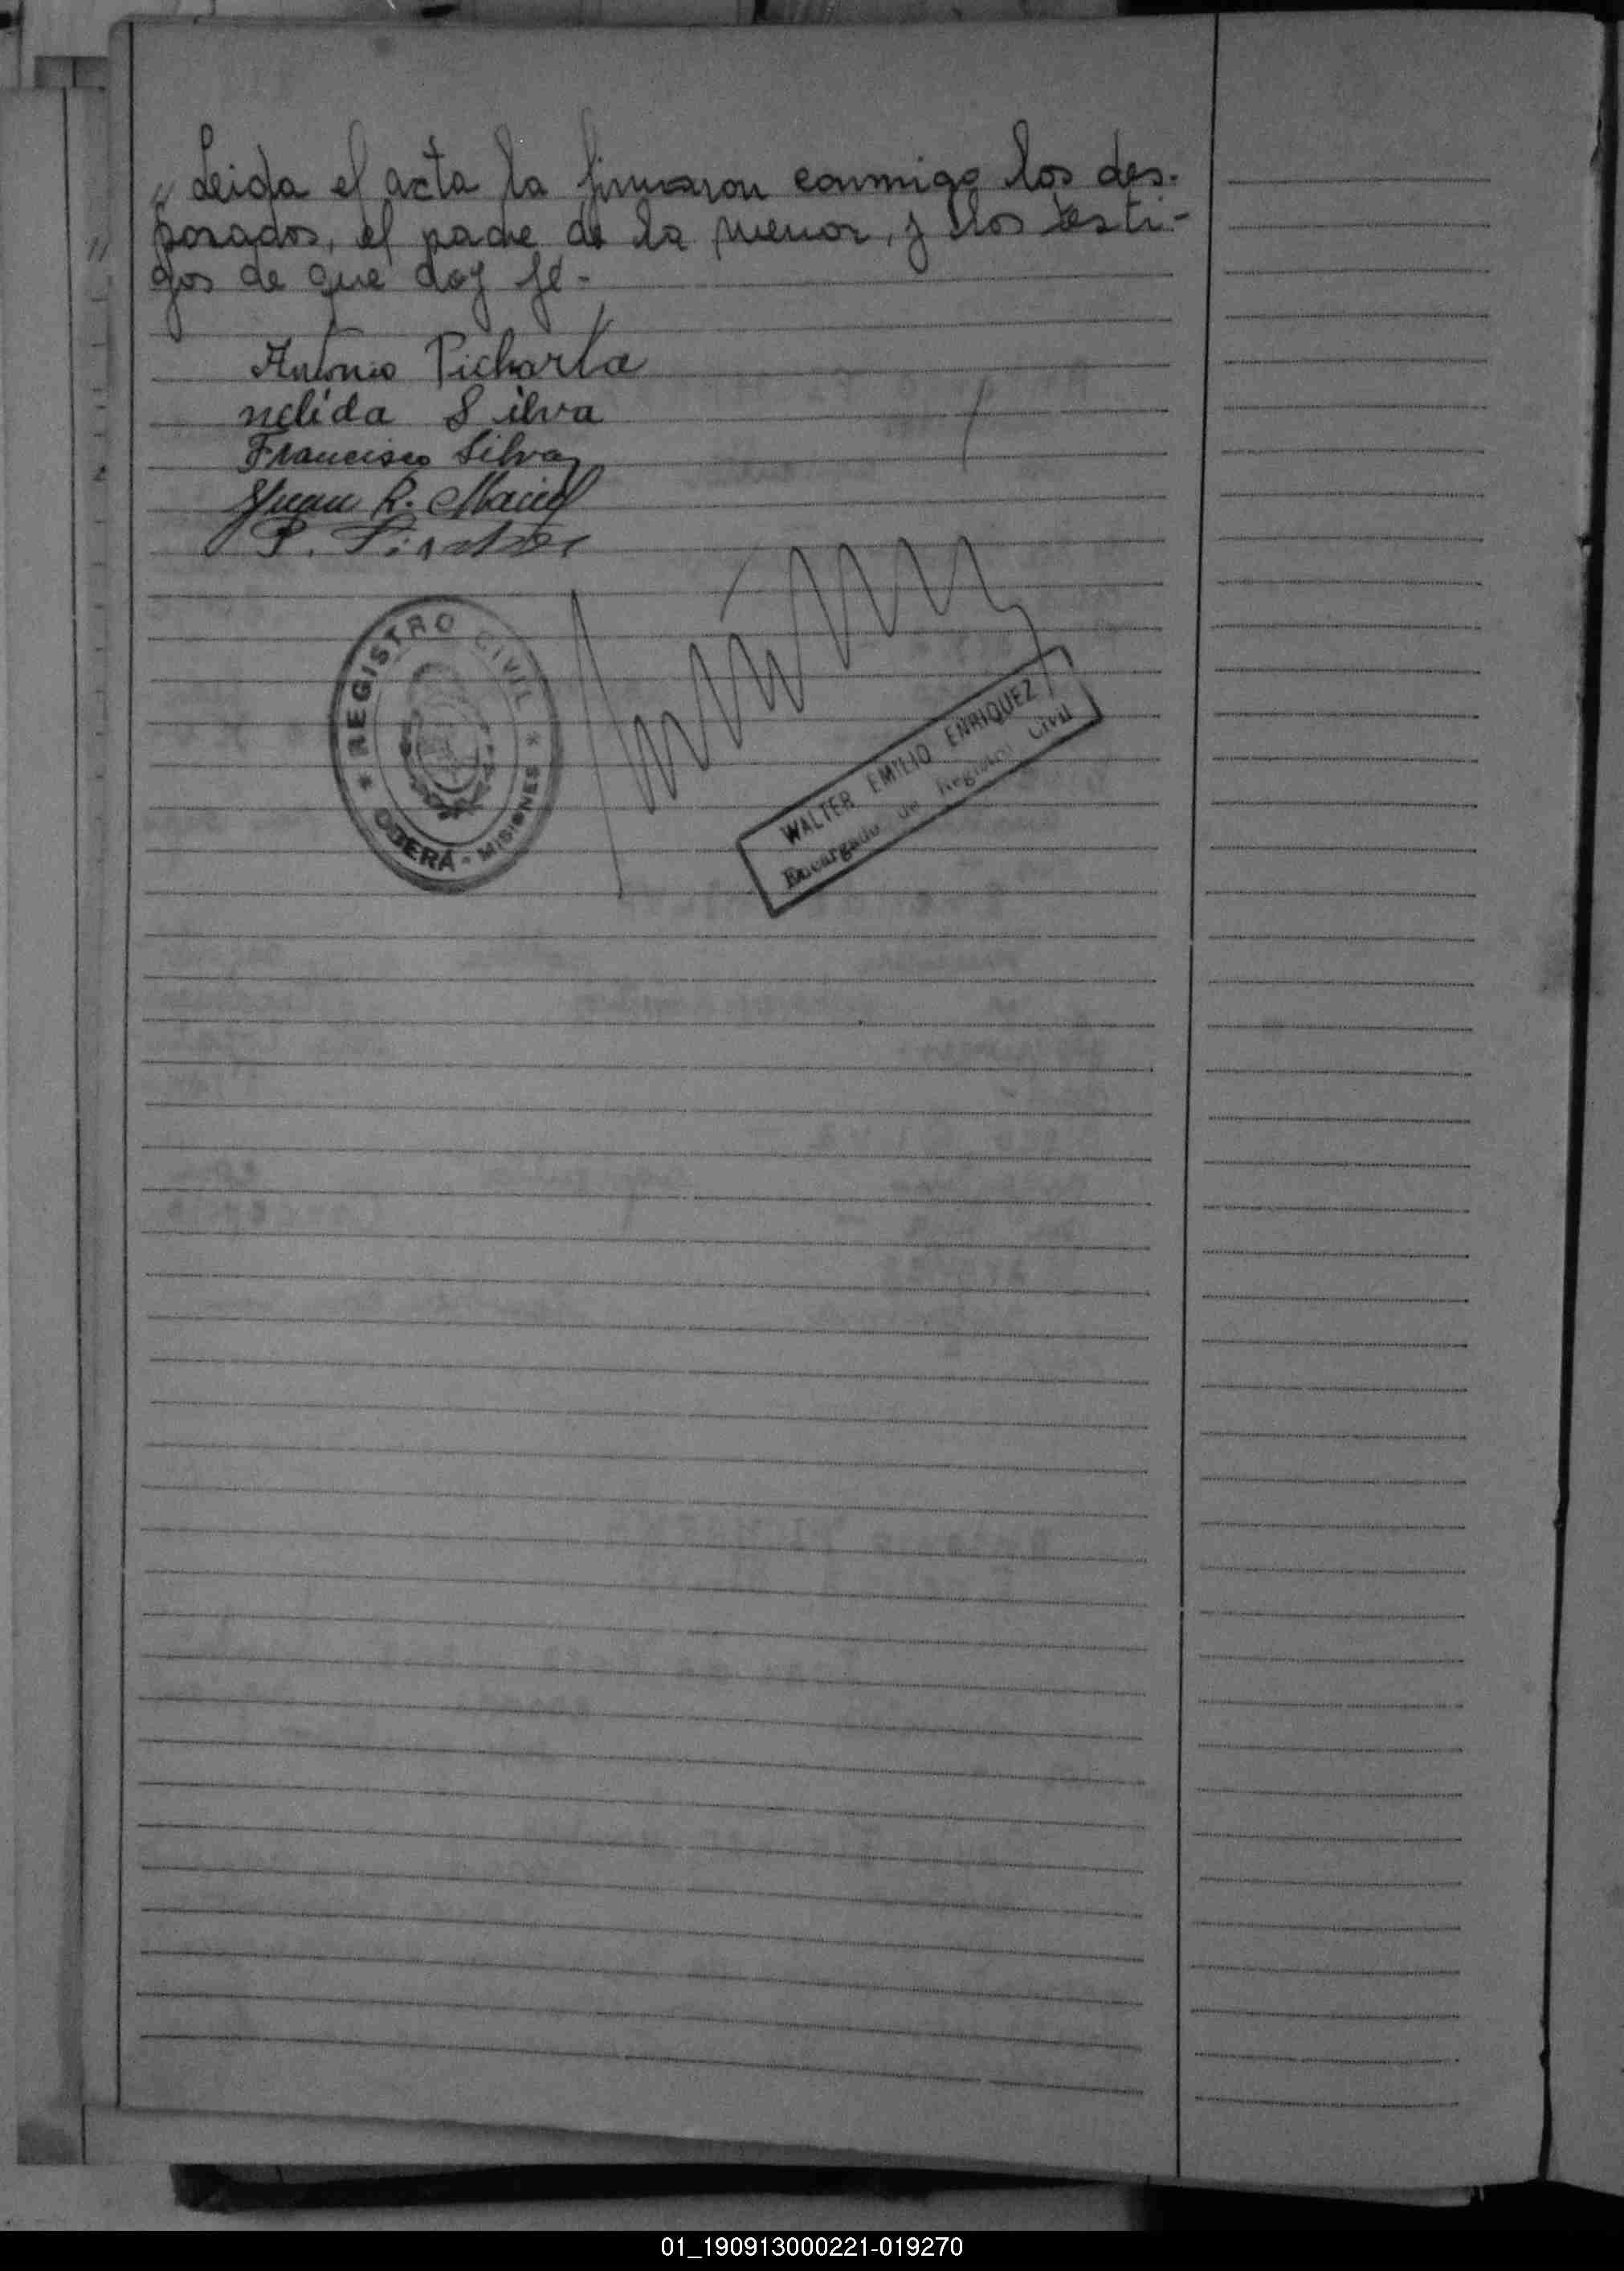 " Leida el acta la firmaron conmigo los des-
posados, el padre de la menor, y los testi-
gos de que doy fé.-
Antonio Picharka
nelida Silva
Francisco Silva
Juan R. Maciel
P.
* REGISTRO CIVIL *
OBERÁ - MISIONES
WALTER EMILIO ENRIQUEZ
Encargado de Registro Civil
01_190913000221-019270